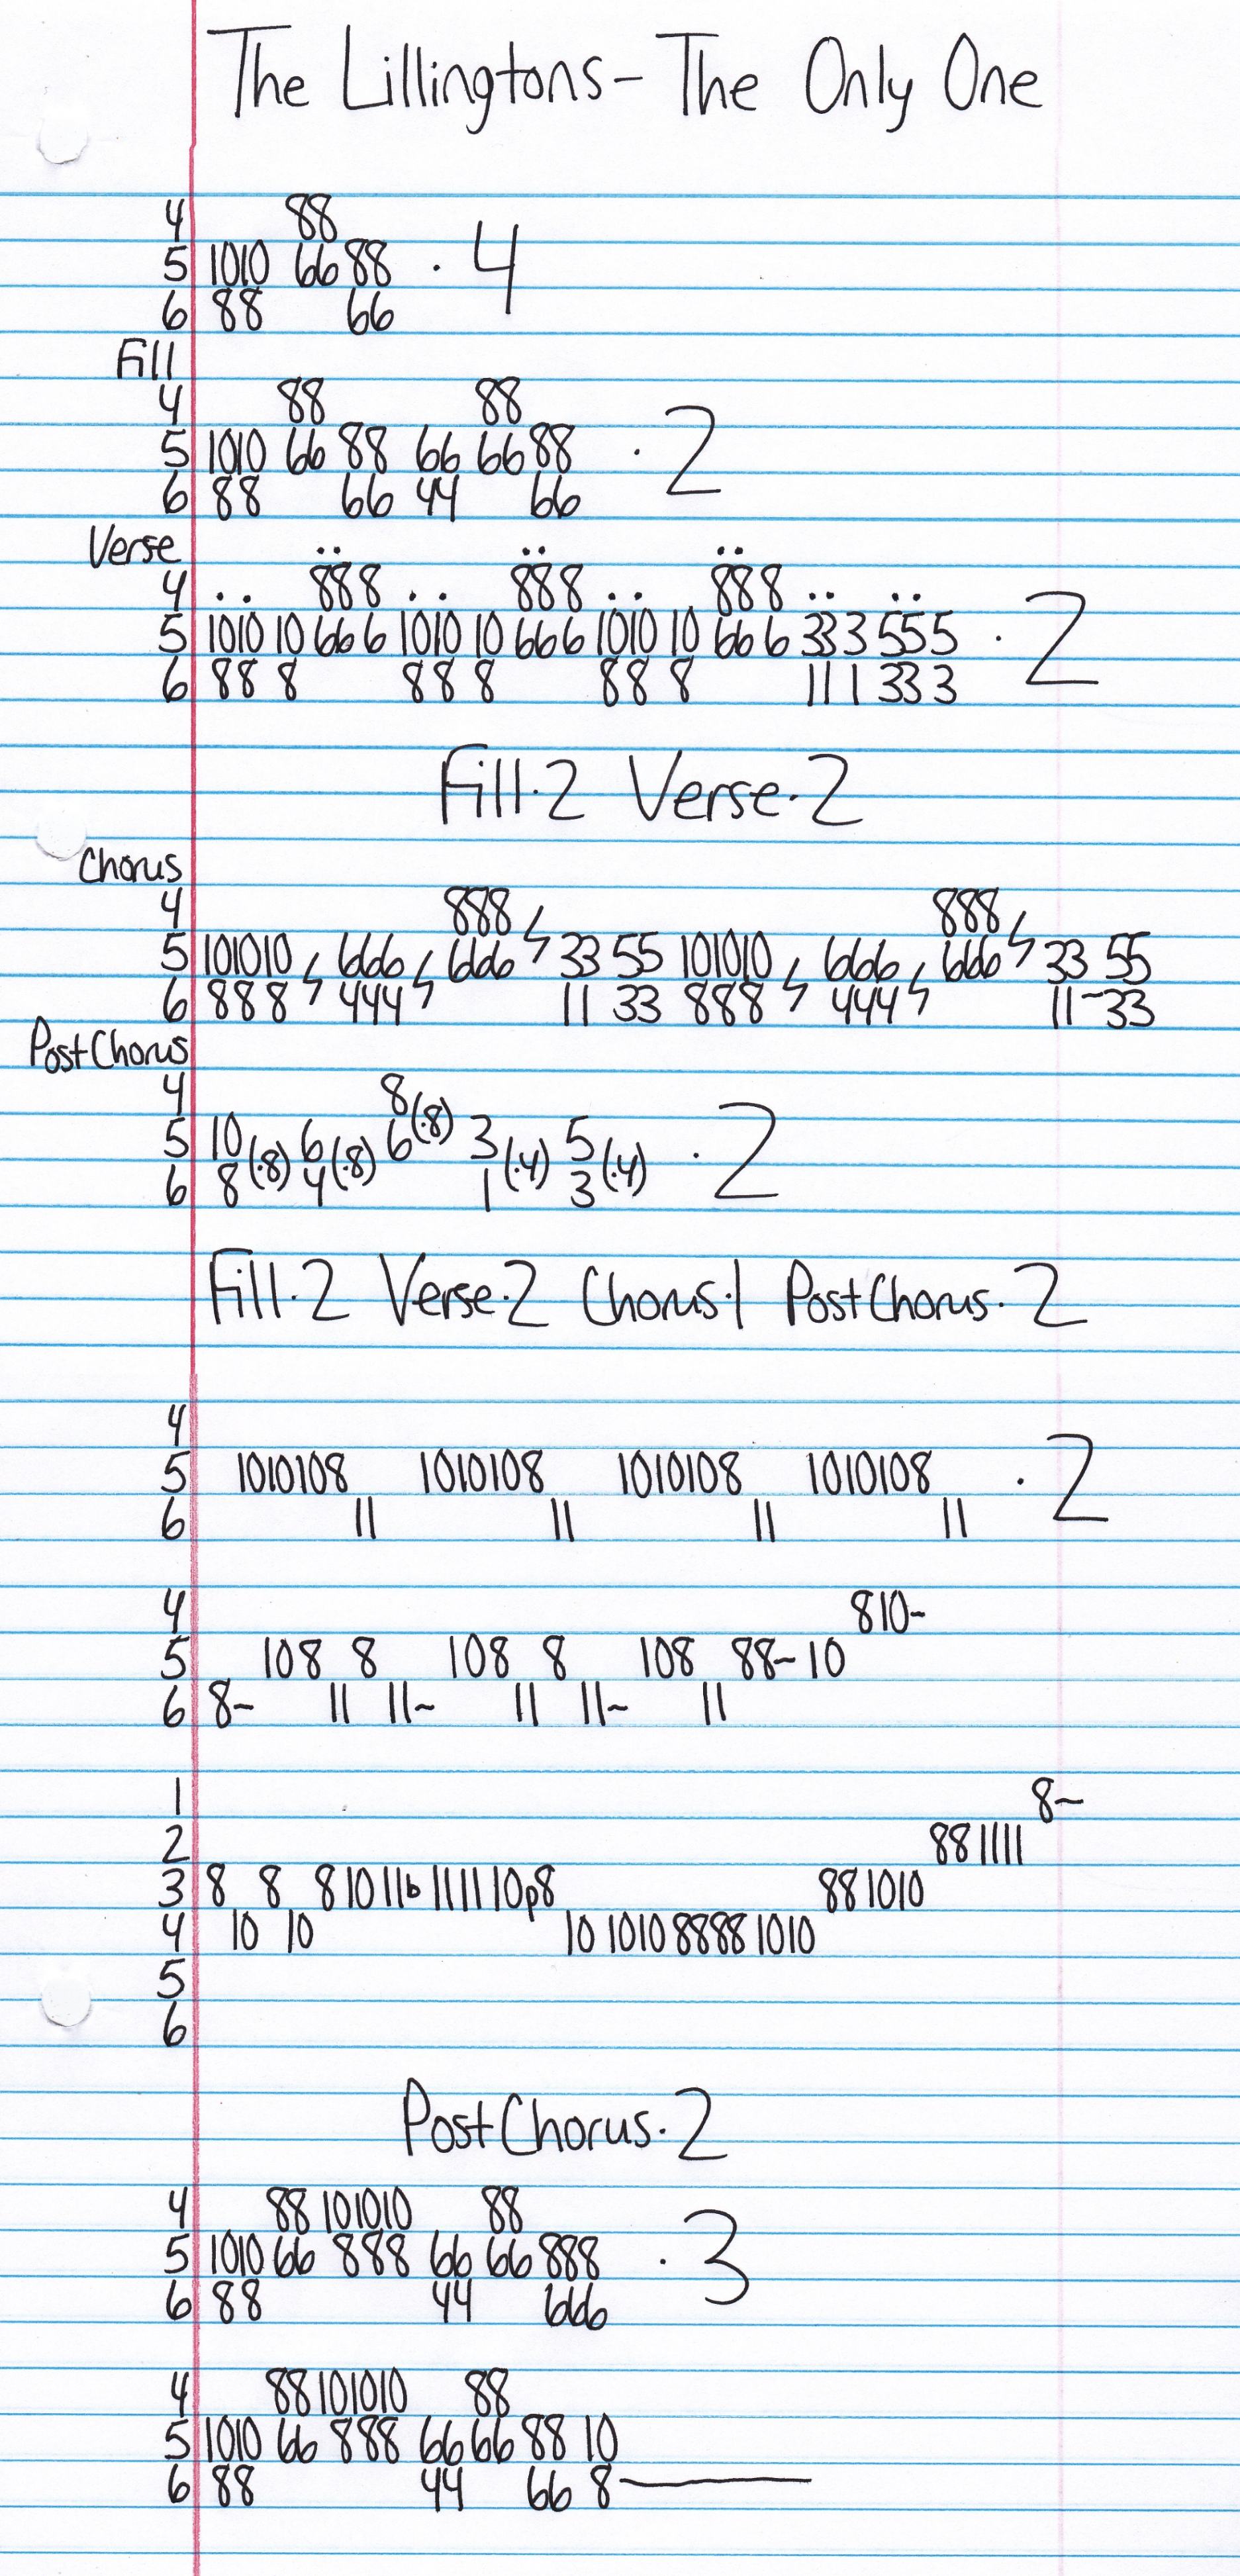 The Lillingtons- The Only One
4 88
5 1010 66 88 · 4
6 88 66
Fill
4 88 88
5 1010 66 88 66 66 88 · 2
6 88 66 44 66
Verse
4 .. 888 .. 888 .. 888 .. ..
5 1010 10 66 6 1010 10 66 6 1010 10 66 6 33 3 55 5 · 2
6 88 8 88 8 88 8 11 1 33 3
Fill·2 Verse·2
Chorus
4 888 888
5 101010 666 666 33 55 101010 666 666 33 55
6 888 444 11 33 888 444 11-33
PostChorus
4 8
5 10 6 6(·8) 3 5 · 2
6 8(·8) 4(·8) 1(·4) 3(·4)
Fill·2 Verse·2 Chorus·1 PostChorus·2
4
5 1010108 1010108 1010108 1010108 · 2
6 11 11 11 11
4 810~
5 108 8 108 8 108 88~ 10
6 8~ 11 11~ 11 11~ 11
1 8~
2 88 1111
3 8 8 8 10 11b 11 11 10p8 88 1010
4 10 10 10 1010 8888 1010
5
6
PostChorus·2
4 88 101010 88
5 1010 66 888 66 66 888 · 3
6 88 44 666
4 88 101010 88
5 1010 66 888 66 66 88 10
6 88 44 66 8